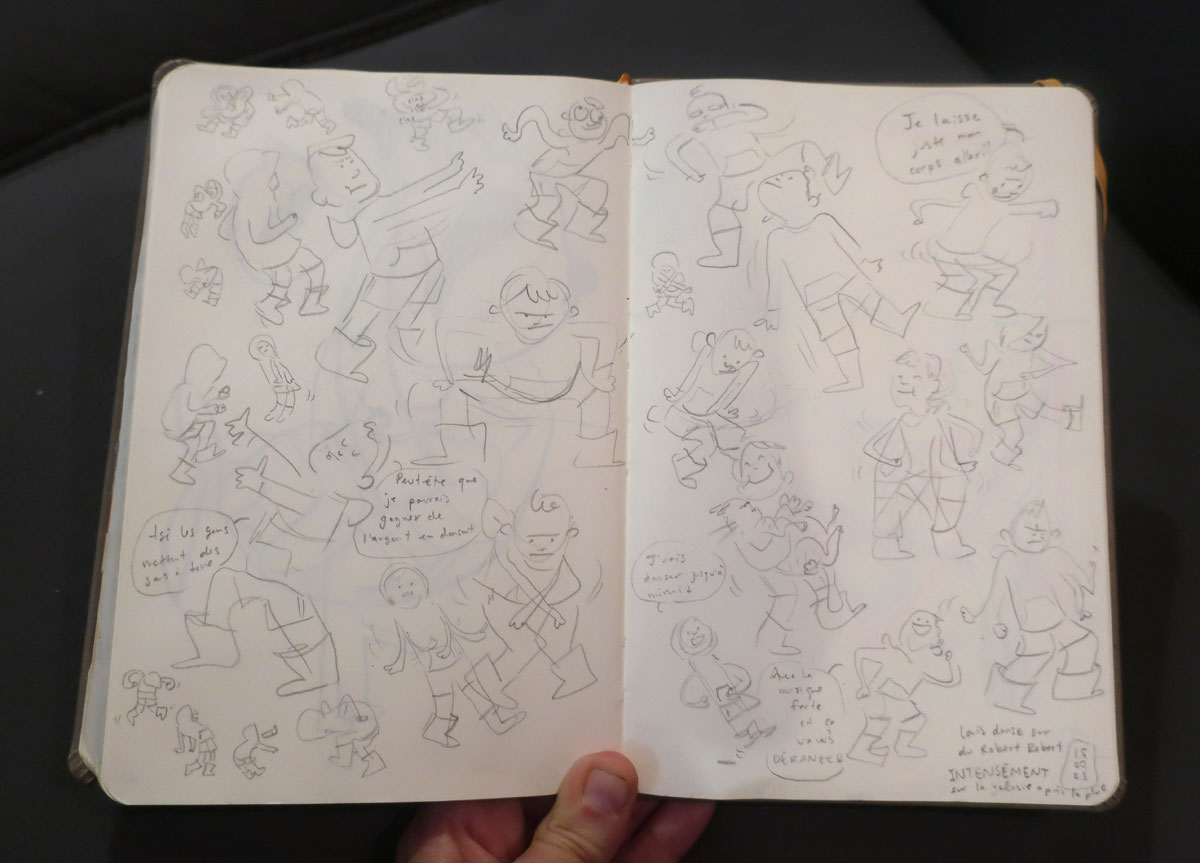 Peut-être que
je pourrais
gagner de
l'argent en dansant
+si les gens
mettent des
sous à terre
Je laisse
juste mon
corps aller!!
J'vais
danser jusqu'à
minuit
Avec la
musique
forte
et ça
va vous
DÉRANGER
Laïs danse sur
du Robert Robert
INTENSÉMENT
sur la galerie après la pluie